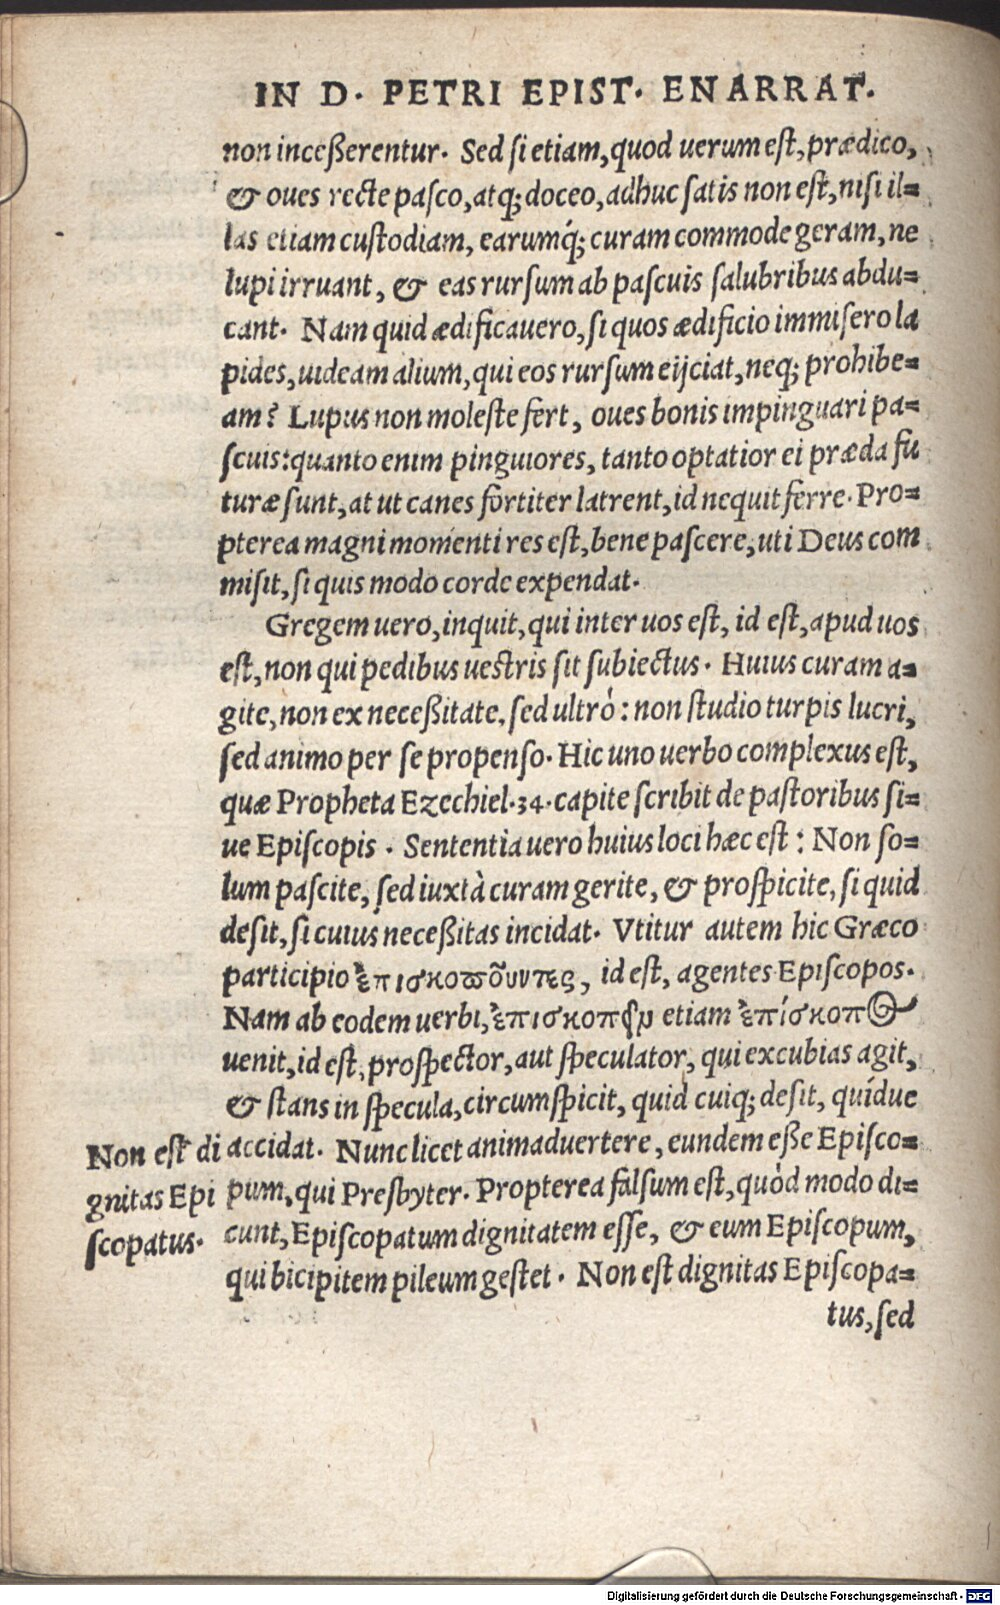 IN D. PETRI EPIST. ENARRAT.
non inceßerentur. Sed ſi etiam, quod uerum eſt, prædico,
& oues recte paſco, atq; doceo, adhuc ſatis non eſt, niſi il=
las etiam cuſtodiam, earumq́; curam commode geram, ne
lupi irruant, & eas rurſum ab paſcuis ſalubribus abdu=
cant. Nam quid ædificauero, ſi quos ædificio immiſero la
pides, uideam alium, qui eos rurſum eijciat, neq; prohibe=
am? Lupus non moleſte fert, oues bonis impinguari pa=
ſcuis: quanto enim pinguiores, tanto optatior ei præda fu
turæ ſunt, at ut canes fortiter latrent, id nequit ferre. Pro=
pterea magni momenti res eſt, bene paſcere, uti Deus com
miſit, ſi quis modo corde expendat.
Gregem uero, inquit, qui inter uos eſt, id eſt, apud uos
eſt, non qui pedibus ueſtris ſit ſubiectus. Huius curam a=
gite, non ex neceßitate, ſed ultrò: non ſtudio turpis lucri,
ſed animo per ſe propenſo. Hic uno uerbo complexus eſt,
quæ Propheta Ezechiel. 34. capite ſcribit de paſtoribus ſi=
ue Epiſcopis. Sententia uero huius loci hæc eſt: Non ſo=
lum paſcite, ſed iuxtà curam gerite, & proſpicite, ſi quid
deſit, ſi cuius neceßitas incidat. Vtitur autem hic Græco
participio ἐπισκοποῦντες, id eſt, agentes Epiſcopos.
Nam ab eodem uerbi, ἐπισκοπεῖν etiam ἐπίσκοπος
uenit, id eſt, proſpector, aut ſpeculator, qui excubias agit,
& ſtans in ſpecula, circumſpicit, quid cuiq; deſit, quídue
accidat. Nunc licet animaduertere, eundem eße Epiſco=
pum, qui Presbyter. Propterea falſum eſt, quòd modo di=
cunt, Epiſcopatum dignitatem eſſe, & eum Epiſcopum,
qui bicipitem pileum geſtet. Non eſt dignitas Epiſcopa=
tus, ſed
Non eſt di
gnitas Epi
ſcopatus.
Digitalisierung gefördert durch die Deutsche Forschungsgemeinschaft - DFG